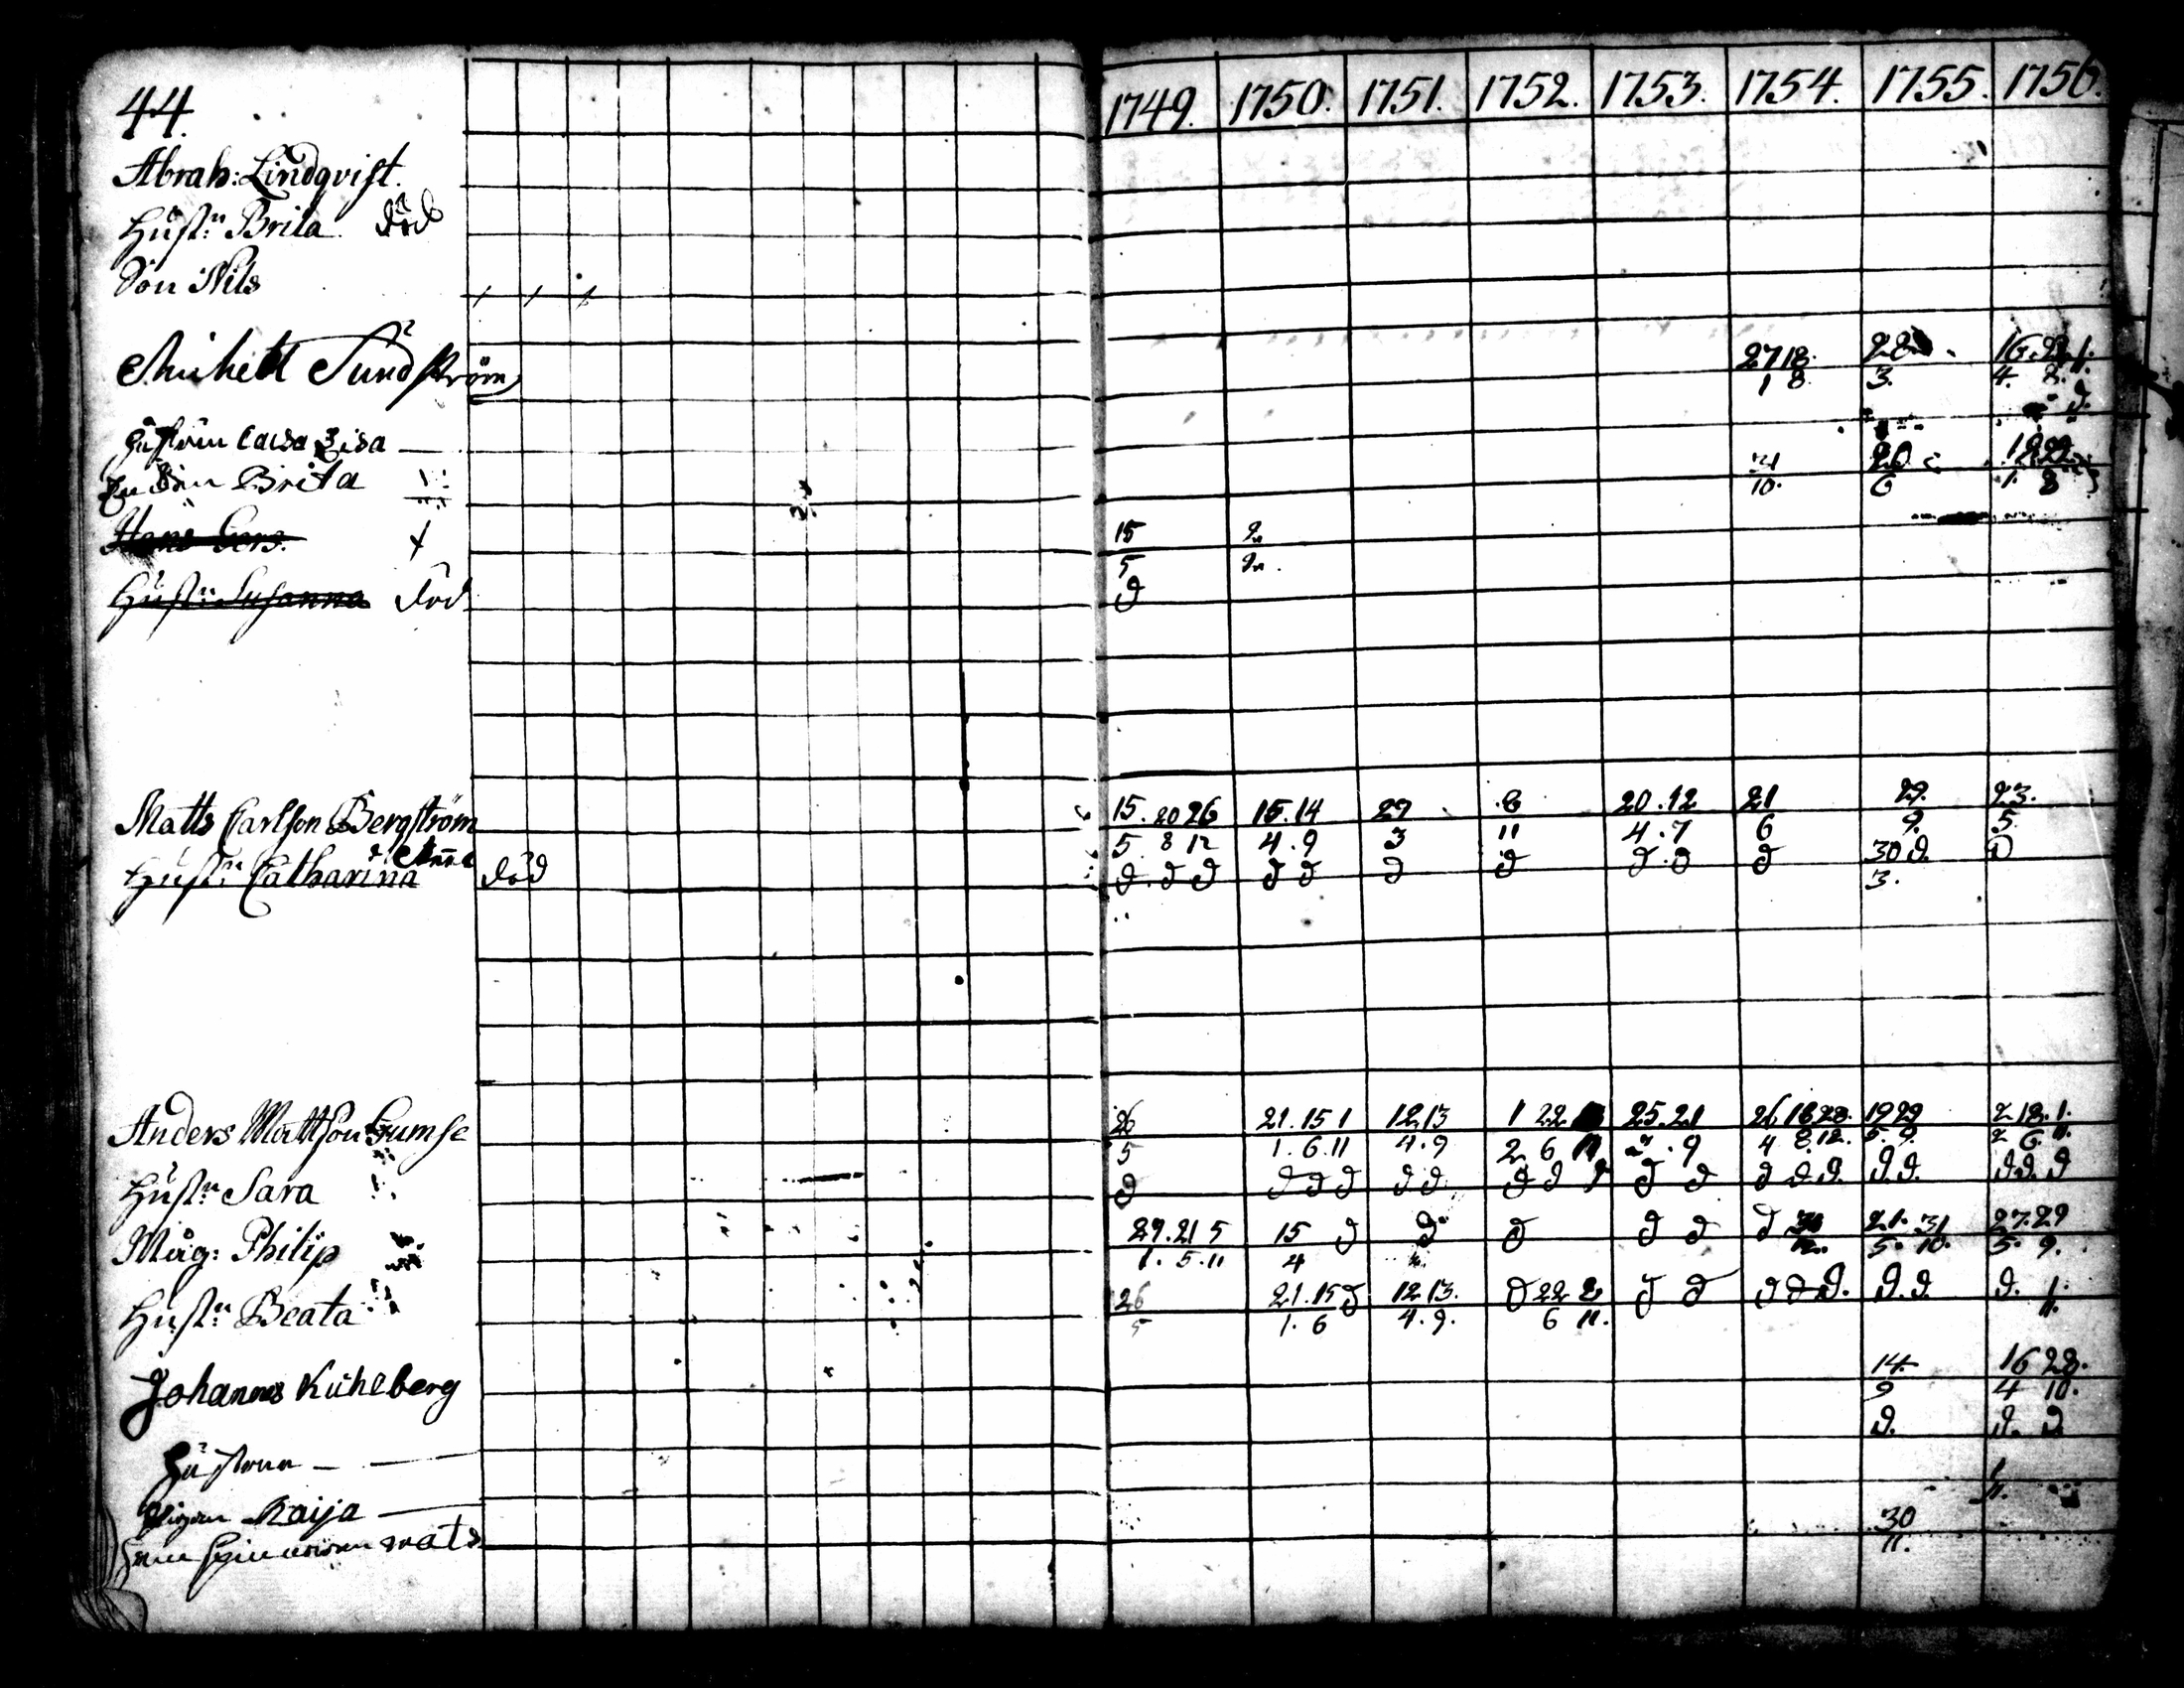 44. 1749. 1750. 1751. 1752. 1753. 1754. 1755. 1756.
Abrah: Lindqvist.
Hustr: Brita död
Son Nils
Michell Sundström 27 18. 28 16.
1 8 3. 4. 8.
Hustrun Caisa Lisa
Brita 21 20
10. 6 1. 8
Hans Gers. 15
5
Hustr: Susanna död d
Matts Carlson Bergström 15. 20 26 15. 14 29 8 20. 12 21 29. 23.
5 8 12 4. 9 3 11 4. 7 6 9. 5.
Anna
Hustr: Catharina död d. d d d d d d d. d d 30 d. d
3.
Anders Mattson Gumse 26 21. 15 1 12 13 1 22 25. 21 26 18 28. 19 29 2 18. 1.
5 1. 6. 11 4. 9 2 6 11 2. 9 4 8. 12. 5. 9. 2 6. 11.
Hustr: Sara d d d d d d d d d d d d d d. d. d. d d. d
Måg: Philip 29. 21 5 15 d d d d d d 21. 31 27. 29
1. 5. 11 4 5. 10. 5. 9.
Hustr: Beata 26 21. 15 d 12 13. d 22 8 d d d d d. d. d. d. 1.
5 1. 6 4. 9. 6 11. 11.
Johannes Kuhlberg 14. 16 28.
9 4 10.
d. d. d
Hustrun
Pigan Kaija
30
11.